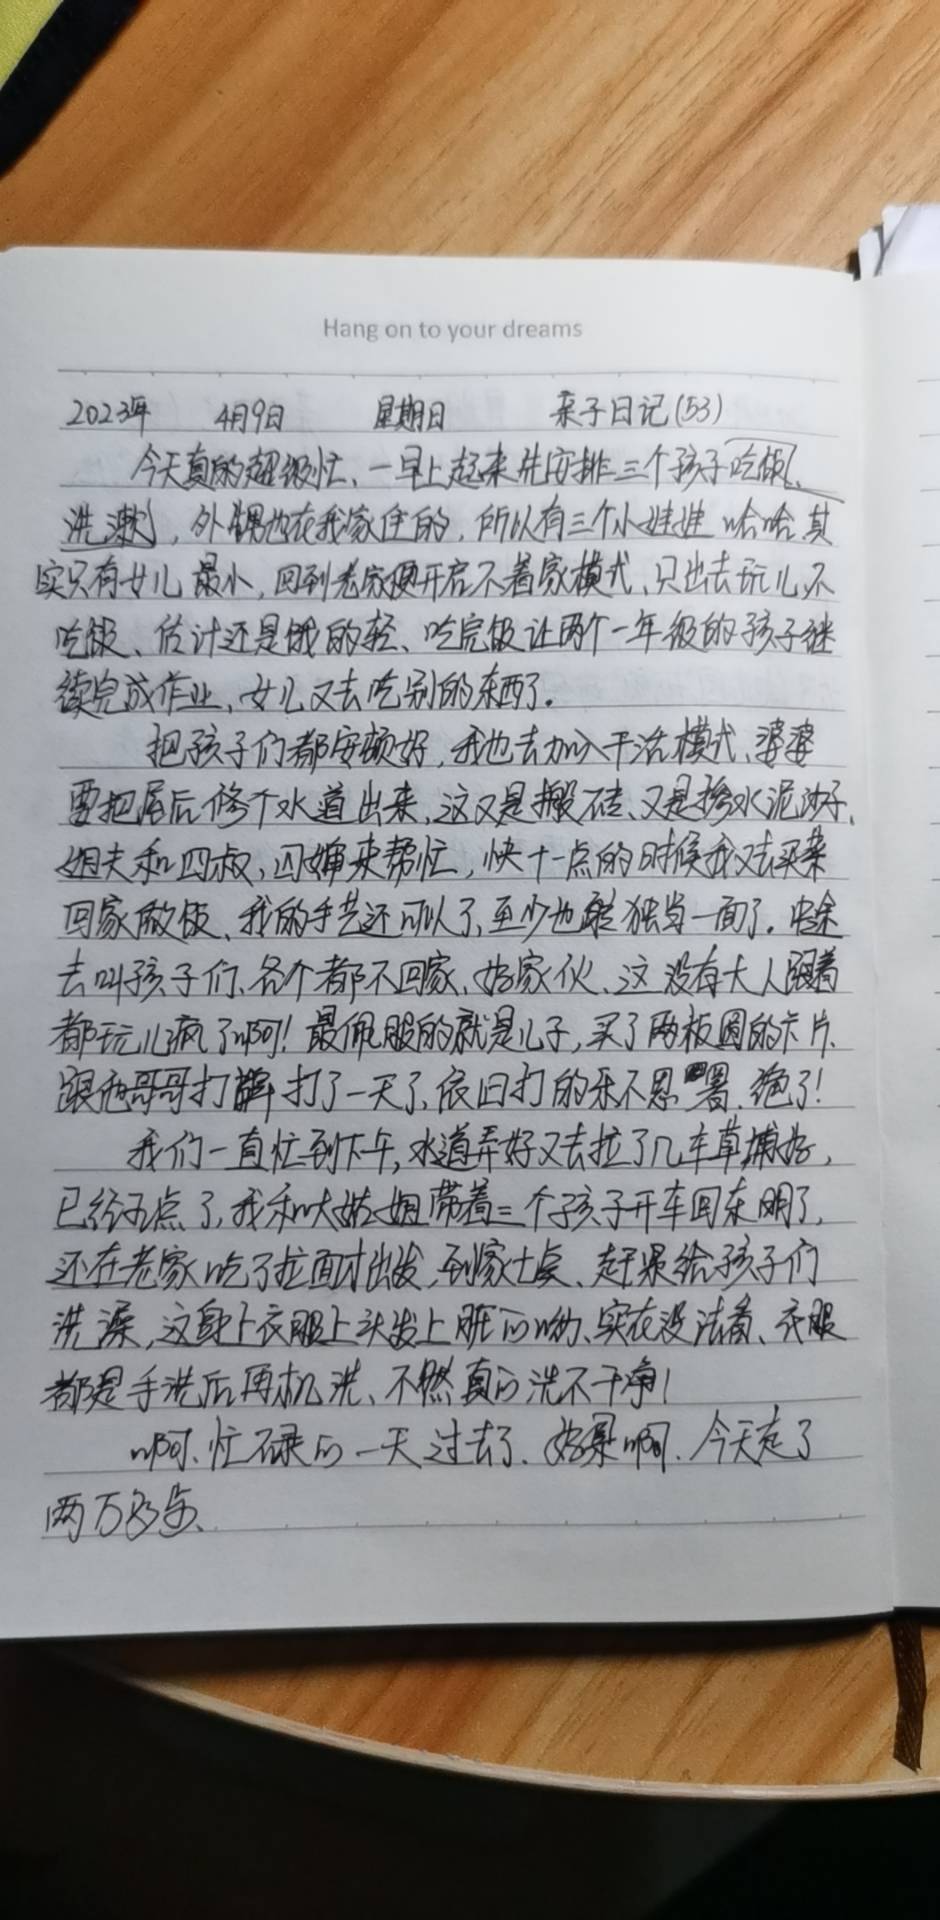 Hang on to your dreams
2023年 4月9日 星期日 亲子日记(53)
今天真的超级忙、一早上起来先安排三个孩子吃饭、
洗漱，外甥也在我家住的，所以有三个小娃娃哈哈.其
实只有女儿最小，回到老家便开启不着家模式、只出去玩儿不
吃饭、估计还是饿的轻、吃完饭让两个一年级的孩子继
续完成作业，女儿又去吃别的东西了。
把孩子们都安顿好，我也去加入干活模式、婆婆
要把屋后修个水道出来，这又是搬砖、又是掺水泥沙子、
姐夫和四叔，四婶来帮忙，快十一点的时候我又去买菜
回家做饭、我的手艺还可以了，至少也能独当一面了。中途
去叫孩子们、各个都不回家、好家伙、这没有大人跟着
都玩儿疯了啊！最佩服的就是儿子，买了两板圆的卡片、
跟他哥哥打牌打了一天了、依旧打的乐不思署、绝了！
我们一直忙到下午，水道弄好又去拉了几车草铺好，
已经五点了，我和大姑姐带着三个孩子开车回东明了，
还在老家吃了拉面才出发，到家七点、赶紧给孩子们
洗澡，这身上衣服上头发上脏的呦、实在没法看、衣服
都是手洗后再机洗、不然真的洗不干净！
啊、忙碌的一天过去了、好累啊、今天走了
两万多步、